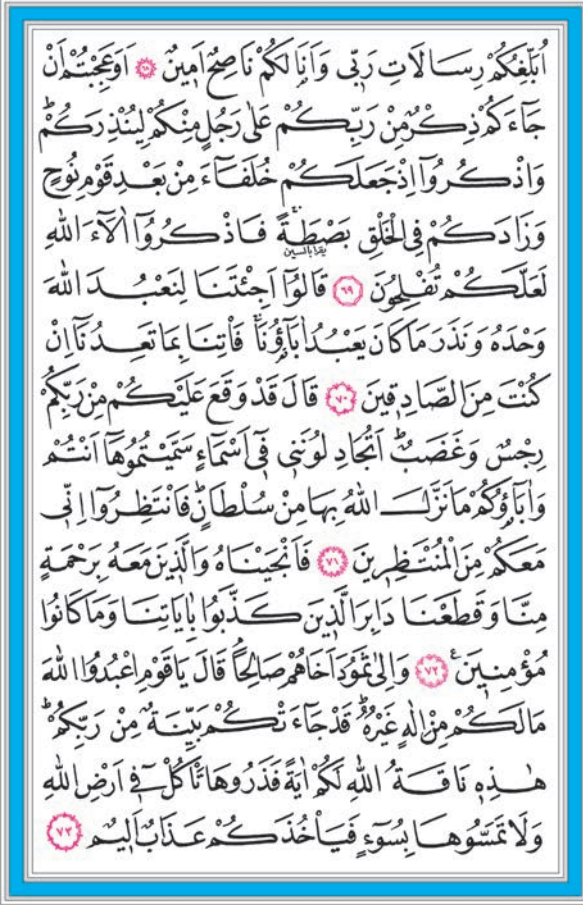 اُبَلِّغُكُمْ رِسَالَاتِ رَبّ۪ى وَاَنَا۬ لَكُمْ نَاصِحٌ اَم۪ينٌ ﴿٦٨﴾ اَوَعَجِبْتُمْ اَنْ
جَٓاءَكُمْ ذِكْرٌ مِنْ رَبِّكُمْ عَلٰى رَجُلٍ مِنْكُمْ لِيُنْذِرَكُمْۜ
وَاذْكُرُٓوا اِذْ جَعَلَكُمْ خُلَفَٓاءَ مِنْ بَعْدِ قَوْمِ نُوحٍ
وَزَادَكُمْ فِى الْخَلْقِ بَصْۣطَةًۚ فَاذْكُرُٓوا اٰلَٓاءَ اللّٰهِ
يقرأ بالسين
لَعَلَّكُمْ تُفْلِحُونَ ﴿٦٩﴾ قَالُٓوا اَجِئْتَنَا لِنَعْبُدَ اللّٰهَ
وَحْدَهُ وَنَذَرَ مَا كَانَ يَعْبُدُ اٰبَٓاؤُ۬نَاۚ فَأْتِنَا بِمَا تَعِدُنَٓا اِنْ
كُنْتَ مِنَ الصَّادِق۪ينَ ﴿٧٠﴾ قَالَ قَدْ وَقَعَ عَلَيْكُمْ مِنْ رَبِّكُمْ
رِجْسٌ وَغَضَبٌۜ اَتُجَادِلُونَن۪ى ف۪ٓى اَسْمَٓاءٍ سَمَّيْتُمُوهَٓا اَنْتُمْ
وَاٰبَٓاؤُ۬كُمْ مَا نَزَّلَ اللّٰهُ بِهَا مِنْ سُلْطَانٍۜ فَانْتَظِرُٓوا اِنّ۪ى
مَعَكُمْ مِنَ الْمُنْتَظِر۪ينَ ﴿٧١﴾ فَاَنْجَيْنَاهُ وَالَّذ۪ينَ مَعَهُ بِرَحْمَةٍ
مِنَّا وَقَطَعْنَا دَابِرَ الَّذ۪ينَ كَذَّبُوا بِاٰيَاتِنَا وَمَا كَانُوا
مُؤْمِن۪ينَ۟ ﴿٧٢﴾ وَاِلٰى ثَمُودَ اَخَاهُمْ صَالِحًاۢ قَالَ يَا قَوْمِ اعْبُدُوا اللّٰهَ
مَا لَكُمْ مِنْ اِلٰهٍ غَيْرُهُۜ قَدْ جَٓاءَتْكُمْ بَيِّنَةٌ مِنْ رَبِّكُمْۜ
هٰذِه۪ نَاقَةُ اللّٰهِ لَكُمْ اٰيَةً فَذَرُوهَا تَأْكُلْ ف۪ٓى اَرْضِ اللّٰهِ
وَلَا تَمَسُّوهَا بِسُٓوءٍ فَيَأْخُذَكُمْ عَذَابٌ اَل۪يمٌ ﴿٧٣﴾